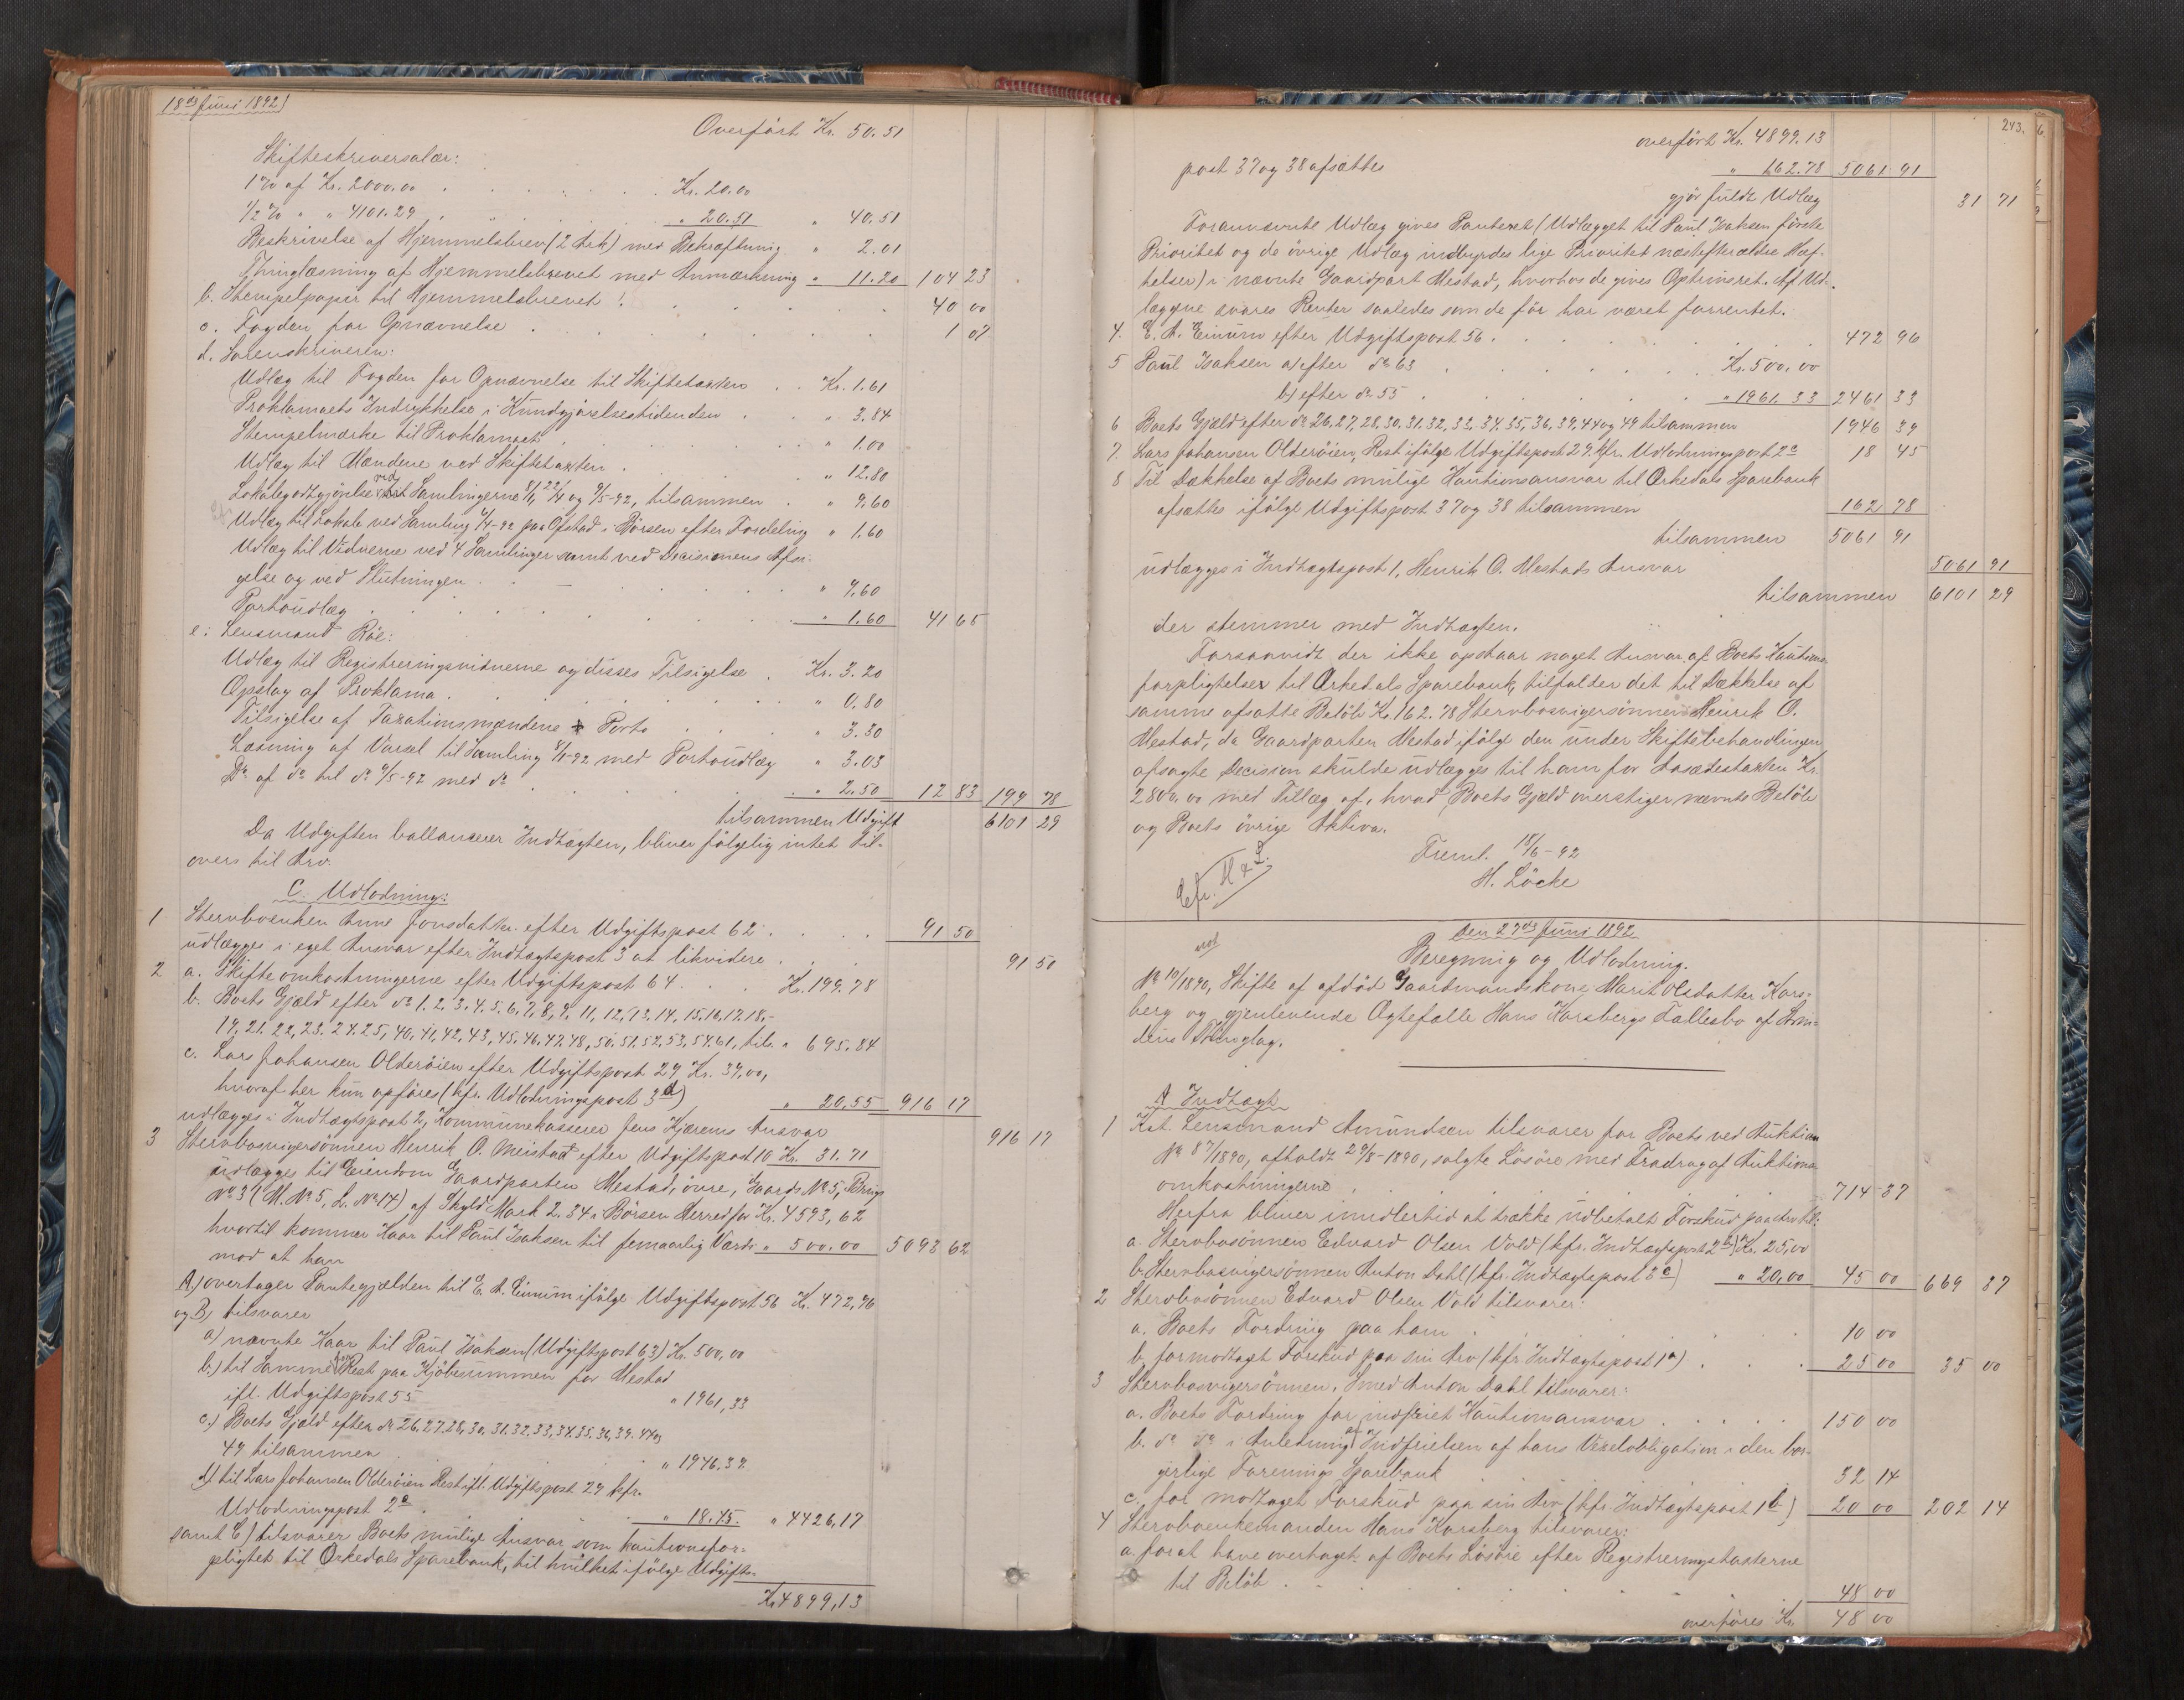 18de Juni 1892)
Overført Kr. 50.51
Skifteskriversalær:
1 % af Kr. 2000.00 . . . . Kr. 20.00
1/2 % " " 4101.29 . . . " 20.51 " 40.51
Beskrivelse af Hjemmelsbrev (2 Ark) med Bekræftning " 2.01
Thinglæsning af Hjemmelsbrevet med Anmærkning " 11.20 104 23
b. Stempelpapir til Hjemmelsbrevet . . . 40 00
c. Fogden for Opnævnelse . . . 1 07
d. Sorenskriveren:
Udlæg til Fogden for Opnævnelse til Skiftetaxten . . Kr. 1.61
Proklamaets Indrykkelse i Kundgjørelsestidenden . " 3.84
Stempelmærke til Proklamaet . . . " 1.00
Udlæg til Mændene ved Skiftetaxten . . . " 12.80
Lokalegodtgjørelse ved Samlingerne 8/1, 22/4 og 9/5-92, tilsammen . " 9.60
Udlæg til Lokale ved Samling 6/4-92 paa Ofstad i Børsen efter Fordeling " 1.60
Udlæg til Vidnerne ved 4 Samlinger samt ved Decisionens Afsi-
gelse og ved Slutningen . . . " 9.60
Portoudlæg . . . " 1.60 41 65
e. Lensmand Röe:
Udlæg til Registreringsvidnerne og disses Tilsigelse . Kr. 3.20
Opslag af Proklama . . . " 0.80
Tilsigelse af Taxationsmændene Porto . . " 3.30
Læsning af Varsel til Samling 8/1-92 med Portoudlæg " 3.03
Do af do til do 9/5-92 med do . . . " 2.50 12 83 199 78
tilsammen Udgift 6101 29
Da Udgiften ballancerer Indtægten, bliver følgelig intet til-
overs til Arv.
C. Udlodning:
1 Stervboenken Anne Jonsdatter efter Udgiftspost 62 . . . 91 50
udlægges i eget Ansvar efter Indtægtspost 3 at likvidere . . . 91 50
2 a. Skifteomkostningerne efter Udgiftspost 64 . . . Kr. 199.78
b. Boets Gjæld efter do 1. 2. 3. 4. 5. 6. 7. 8. 9. 11, 12, 13. 14, 15. 16. 17. 18.-
19, 21. 22, 23. 24. 25, 40, 41, 42, 43, 45. 46. 47. 48, 50. 51. 52, 53, 54. 61, tils. " 695.84
c. Lars Johansen Olderøien efter Udgiftspost 29 Kr. 39,00,
hvoraf her kun opføres (kfr. Udlodningspost 3 d) " 20,55 916 17
udlægges i Indtægtspost 2, Kommunekasserer Jens Kjærems Ansvar 916 17
3 Stervbosvigersønnen Henrik O. Meistad efter Udgiftspost 10 Kr. 31.71
udlægges til Eiendom Gaardparten Mestad, øvre, Gaards No 5, Brugs
No 3 (M. No 5, L. No 14) af Skyld Mark 2.34 i Børsen Herred for Kr. 4593,62
hvortil kommer Kaar til Paul Isaksen til femaarlig Værdi " 500.00 5093 62
mod at han
A.) overtager Pantegjælden til E. A. Einum ifølge Udgiftspost 56 Kr. 472,96
og B) tilsvarer
a) nævnte Kaar til Paul Isaksen (Udgiftspost 63) Kr. 500,00
b.) til Samme Rest paa Kjøbesummen for Mestad
ifl. Udgiftspost 55 " 1961,33
c.) Boets Gjæld efter do 26. 27. 28, 30, 31. 32. 33, 34. 35. 36, 39. 44 og
49 tilsammen . . . " 1946,39
d) til Lars Johansen Olderøien Rest ifl. Udgiftspost 29 kfr.
Udlodningspost 2 c . . . " 18.45. " 4426,17
samt C) tilsvarer Boets mulige Ansvar som kautionsfor-
pligtet til Orkedals Sparebank, til hvilket ifølge Udgifts-
Kr. 4899,13
243.
overført Kr. 4899.13
post 37 og 38 afsættes " 162.78 5061 91
gjør fuldt Udlæg 31 71
Forannævnte Udlæg gives Panteret (Udlægget til Paul Isaksen første
Prioritet og de øvrige Udlæg indbyrdes lige Prioritet næstefter ældre Hæf-
telser) i nævnte Gaardpart Mestad, hvorhos de gives Optrinsret. Af Ud-
læggene svares Renter saaledes som de før har været forrentet.
4. E. A. Einum efter Udgiftspost 56 . . . 472 96
5 Paul Isaksen a) efter do 63 . . . Kr. 500.00
b) efter do 55 . . . " 1961.33 2461 33
6 Boets Gjæld efter do 26. 27, 28, 30. 31. 32, 33. 34. 35, 36, 39, 44 og 49 tilsammen 1946 39
7. Lars Johansen Olderøien, Rest ifølge Udgiftspost 29. kfr. Udlodningspost 2 c 18 45
8 Til Dækkelse af Boets mulige Kautionsansvar til Orkedals Sparebank
afsættes ifølge Udgiftspost 37 og 38 tilsammen 162 78
tilsammen 5061 91
udlægges i Indtægtspost 1, Henrik O. Mestads Ansvar 5061 91
tilsammen 6101 29
der stemmer med Indtægten.
Forsaavidt der ikke opstaar noget Ansvar af Boets Kautions-
forpligtelser til Orkedals Sparebank, tilfalder det til Dækkelse af
samme afsatte Beløb Kr. 162.78 Stervbosvigersønnen Henrik O.
Mestad, da Gaardparten Mestad ifølge den under Skiftebehandlingen
afsagte Decision skulde udlægges til ham for Aasædestaxten Kr.
2800.00 med Tillæg af, hvad Boets Gjæld overstiger nævnte Beløb
og Boets øvrige Aktiva.
Freml. 18/6-92
H. Löcke
Cfr. H & L.
Den 27de Juni 1892.
Beregning og Udlodning.
No 10/1890, Skifte af afdød Gaardmandskone Marit Olsdatter Kars-
berg og gjenlevende Ægtefælle Hans Karsbergs Fællesbo af Strin-
dens Thinglag.
A Indtægt
1 Kst. Lensmand Amundsen tilsvarer for Boets ved Auktion
No 87/1890, afholdt 29/8-1890, solgte Løsøre med Fradrag af Auktions-
omkostningerne . . . 714 87
Herfra bliver imidlertid at trække udbetalt Forskud paa Arv til:
a. Stervbosønnen Edvard Olsen Vold (kfr. Indtægtspost 2 b) Kr. 25,00
b. Stervbosvigersønnen Anton Dahl (kfr. Indtægtspost 3 c) " 20,00 45 00 669 87
2 Stervbosønnen Edvard Olsen Vold tilsvarer:
a. Boets Fordring paa ham . . . 10 00
b. for modtagt Forskud paa sin Arv (kfr Indtægtspost 1 a) . . . 25 00 35 00
3 Stervbosvigersønnen, Smed Anton Dahl tilsvarer:
a. Boets Fordring for indfriet Kautionsansvar . . . 150 00
b. do do i Anledning af Indfrielsen af hans Vexelobligation i den bor-
gerlige Forenings Sparebank 32 14
c. for modtaget Forskud paa sin Arv (kfr. Indtægtspost 1 b) 20 00 202 14
4 Stervboenkemanden Hans Karsberg tilsvarer:
a. for at have overtaget af Boets Løsøre efter Registreringstaxterne
til Beløb . . . 48 00
overføres Kr. 48 00